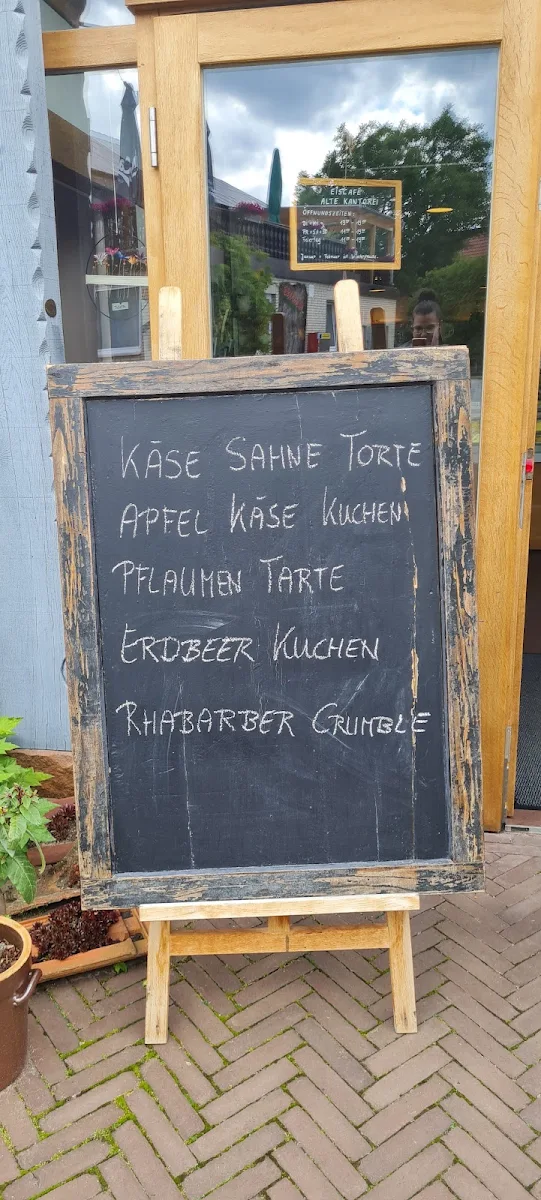 EISCAFÉ
ALTE KANTOREI
ÖFFNUNGSZEITEN:
KÄSE SAHNE TORTE
APFEL KÄSE KUCHEN
PFLAUMEN TARTE
ERDBEER KUCHEN
RHABARBER CRUMBLE